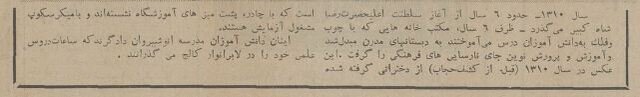 سال ۱۳۱۰ــ حدود ۶ سال از آغاز سلطنت اعلیحضرت رضا
شاه کبیر می‌گذرد ــ ظرف ۶ سال، مکتب خانه هایی که با چوب
وفلك به‌دانش آموزان درس می‌آموختند به دبستانهای مدرن مبدل شد
وآموزش و پرورش نوین جای نارسایی های فرهنگی را گرفت. این
عکس در سال ۱۳۱۰ (قبل از کشف‌حجاب) از دخترانی گرفته شده
است که با چادر، پشت میز های آموزشگاه نشسته‌اند و بامیکرسکوپ
مشغول آزمایش هستند.
اینان دانش آموزان مدرسه انوشیروان دادگرند که ساعات دروس
علمی خود را در لابراتوار کالج می گذرانند.